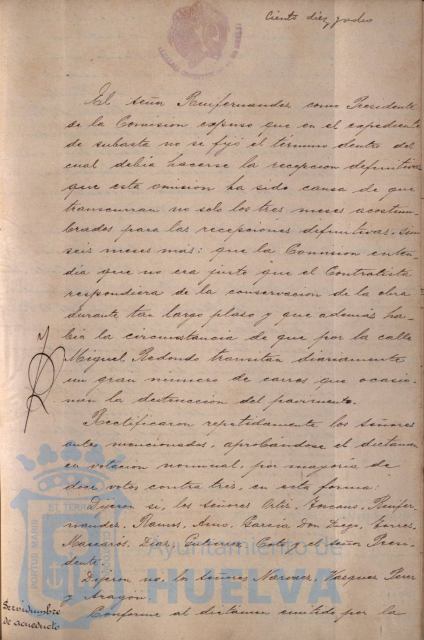 Ciento diez y ocho
El señor Renfernandez como Presidente
de la Comisión expuso que en el expediente
de subasta no se fijó el término dentro del
cual debía hacerse la recepcion definitiva,
que esta omision ha sido causa de que
transcurran no solo los tres meses acostum-
brados para las recepciones definitivas, sino
seis meses más: que la Comisión enten-
día que no era justo que el Contratista
respondiera de la conservacion de la obra
durante tan largo plaso y que además ha-
bía la circunstancia de que por la calle
Miguel Redondo transitan diariamente
un gran numero de carros que ocasio-
nan la destruccion del pavimento.
Rectificaron repetidamente los señores
antes mencionados, aprobándose el dictamen
en votacion nominal, por mayoría de
doce votos contra tres, en esta forma:
Dijeron si, los señores Ortiz, Renfer-
nandez, Ramos, García Don Diego, Torres,
Macarios, Diaz, Gutierrez, Coto y el señor Presi-
dente.
Dijeron no, los señores Narvaez, Vazquez Perez
y Aragon.
Servidumbre
de acueducto
Conforme al dictamen emitido por la
Ayuntamiento de
HUELVA
PORTUS MARIS